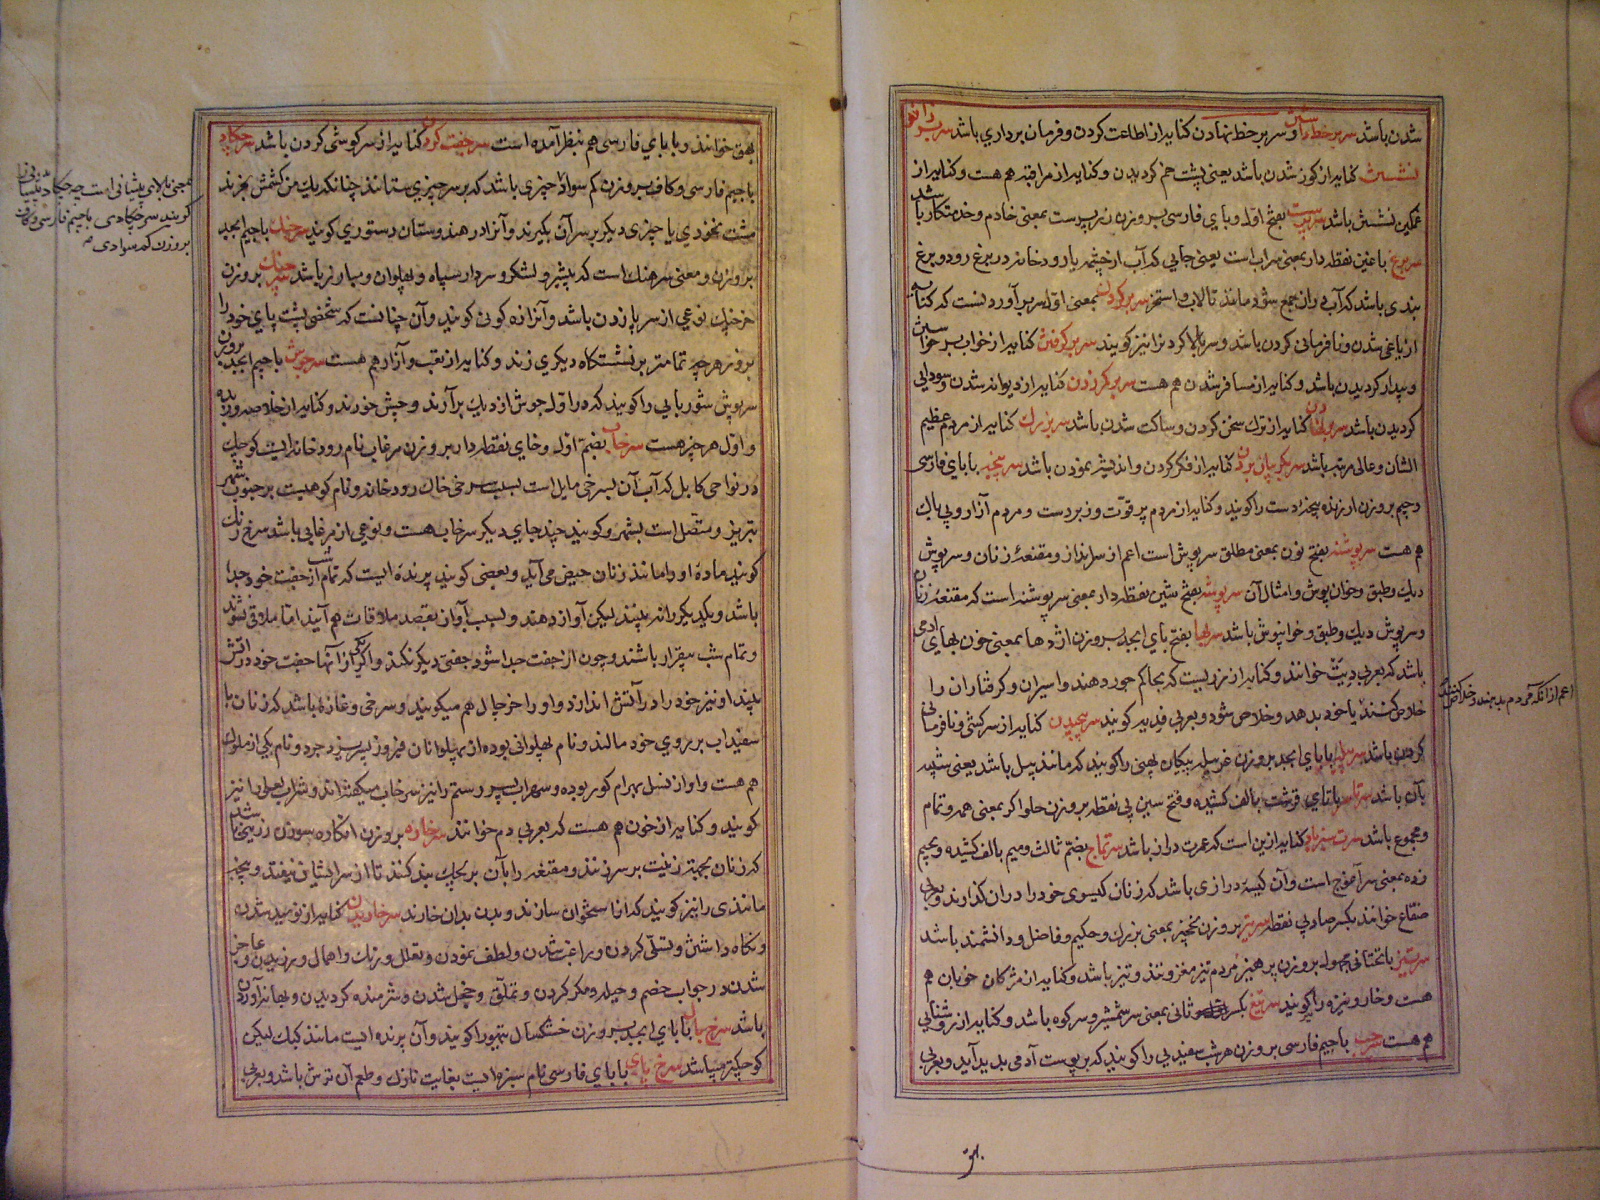 شدن باشد سر بر خط داشتن و سر بر خط نهادن کنایه از اطاعت کردن و فرمان برداری باشد سر بر زانو
نشستن کنایه از کوز شدن باشد یعنی پشت خم کردیدن و کنایه از مراقبه هم هست و کنایه از
غمکین نشستن باشد سرپرست بفتح اول و بای فارسی بر وزن زرپرست بمعنی خادم و خدمتکار باشد
سربرغ با غین نقطه دار بمعنی سراب است یعنی جایی که آب از چشمه یا رودخانه در برغ رود و برغ
بندی باشد که آب دران جمع شود مانند تالاب و استخر سر بر کردن بمعنی اول سر برآوردنست که کنایه
از یاغی شدن و نافرمانی کردن باشد و سر بالا کردنرا نیز کویند سر بر کرفتن کنایه از خواب برخواستن
و بیدار کردیدن باشد و کنایه از مسافر شدن هم هست سر بر کردن کنایه از دیوانه شدن و سودایی
کردیدن باشد کنایه از ترک سخن کردن و ساکت شدن باشد سر بزرک کنایه از مردم عظیم
الشان و عالی مرتبه باشد سر بکریبان بردن کنایه از فکر کردن و اندیشه نمودن باشد سرپنجه با بای فارسی
و جیم بر وزن ارزنده پنجه دست را کویند و کنایه از مردم پر قوت و زبردست و مردم آزار و بی باک
هم هست سرپوشنه بفتح نون بمعنی مطلق سرپوش است اعم از سرانداز و مقنعه زنان و سرپوش
دیک و طبق و خوان پوش و امثال آن سرپوشه بفتح شین نقطه دار بمعنی سرپوشنه است که مقنعه زنان
و سرپوش دیک و طبق و خوانپوش باشد سربها بفتح بای ابجد بر وزن اژدها بمعنی خون بهای آدمی
باشد که بعربی دیت خوانند و کنایه از زریست که بحاکم جور دهند و اسیران و کرفتاران را
خلاص کنند یا خود بدهد و خلاص شود و بعربی فدیه کویند سرپیچیدن کنایه از سرکشی و نافرمانی
کردن باشد سر بیله با بای ابجد بر وزن غربیله پیکان پهنی را کویند که مانند بیل باشد یعنی شبیه
بآن باشد سرتاسر با تای قرشت بالف کشیده و فتح سین بی نقطه بر وزن حلواکر بمعنی همه و تمام
و مجموع باشد سرت سبز باد کنایه ازین است که عمرت دراز باشد سرتماج بضم ثالث و میم بالف کشیده و بجیم
زده بمعنی سرآموج است و آن کیسه درازی باشد که زنان کیسوی خود را دران کذارند و بعربی
صقاع خوانند بکسر صاد بی نقطه سرتیز بر وزن بمعنی بزرک و حکیم و فاضل و دانشمند باشد
سرتیز با تحتانی مجهول بر وزن پرهیز مردم تیز مغز و تند و تیز باشد و کنایه از مژکان خوبان هم
هست و خار و نیزه را کویند سرتیغ بکسر ثانی بمعنی سر شمشیر و سر کوه باشد و کنایه از روشنایی
هم هست سرچب با جیم فارسی بر وزن هر شب سفیدیی را کویند که بر پوست آدمی پدید آید و بعربی
اعم از آنکه آدمی
بهق
بهق خوانند و با بای فارسی هم بنظر آمده است سر جفت کردن کنایه از سر کوشی کردن باشد سرچکاد
با جیم فارسی و کاف بر وزن کم سواد چیزی باشد که بر سر چیزی ستانند چنانکه یک من کشمش بخرند
مشت نخودی یا چیزی دیکر بر سر آن بکیرند و آنرا در هندوستان دستوری کویند سرجنک با جیم ابجد
بر وزن و معنی سرهنک است که پیشرو لشکر و سردار سپاه و پهلوان و مبارز باشد سرچنک بر وزن
خرچنک نوعی از سر پا زدن باشد و آنرا اردنک کونی کویند و آن چنانست که شخصی پشت پای خود را
بزور هر چه تمامتر بر نشستکاه دیکری زند و کنایه از تعب و آزار هم هست سرجوش با جیم ابجد بر وزن
سرپوش شوربایی را کویند که در اول جوش از دیک برآرند و چش خورند و کنایه از خلاصه و زبده
و اول هر چیز هست سرخاب بضم اول و خای نقطه دار بر وزن مرغاب نام رودخانه ایست کوچک
در نواحی کابل که آب آن بسرخی مایل است بسبب سرخی خاک رودخانه و نام کوهیست بر جنوب شهر
تبریز و متصل است بشهر و کویند چند جای دیکر سرخاب هست و نوعی از مرغابی باشد سرخ رنک
کویند ماده او را مانند زنان حیض می آید و بعضی کویند پرنده ایست که تمام شب از جفت خود جدا
باشد و یکدیکر را نه بینند لیکن آواز دهند و بسبب آواز بقصد ملاقات هم آیند اما ملاقی نشوند
و تمام شب بیقرار باشند و چون از جفت جدا شود جفتی دیکر نکند و اکر یکی از آنها جفت خود در آتش
بیند او نیز خود را در آتش اندازد و او را خرچال هم میکویند و سرخی و غازه باشد که زنان با
سفیداب بر روی خود مالند و نام پهلوانی بوده از پهلوانان و نام یکی از ملوک
هم هست و او از نسل بهرام کور بوده و سهراب پسر رستم را نیز سرخاب میکفته اند و شراب لعلی را نیز
کویند و کنایه از خون هم هست که بعربی دم خوانند سرخاره بر وزن انکاره سوزن زرینی باشد
که زنان بجهت زینت بر سر زنند و مقنعه را بآن بر لچک بند کنند تا از سر ایشان نیفتد و پنجه
مانندی را نیز کویند که از استخوان سازند و بدن بدان خارند سر خاریدن کنایه از نومید شدن
و نکاه داشتن و تسلی کردن و راغب شدن و لطف نمودن و تعلل و درنک و اهمال ورزیدن و عاجز
شدن در جواب خصم و حیله و مکر کردن و تملق و خجل شدن و شرمنده کردیدن و بهانه آوردن
باشد سرخ بال با بای ابجد بر وزن خشکسال تیهو را کویند و آن پرنده ایست مانند کبک لیکن
کوچکتر میباشد سرخ پای با بای فارسی نام سبزه ایست بغایت نازک و طعم آن ترش باشد و بعربی
بمعنی بالای پیشانی است چه چکاد پیشانی را
کویند سرچکادی با جیم فارسی و کاف
بر وزن کم سوادی